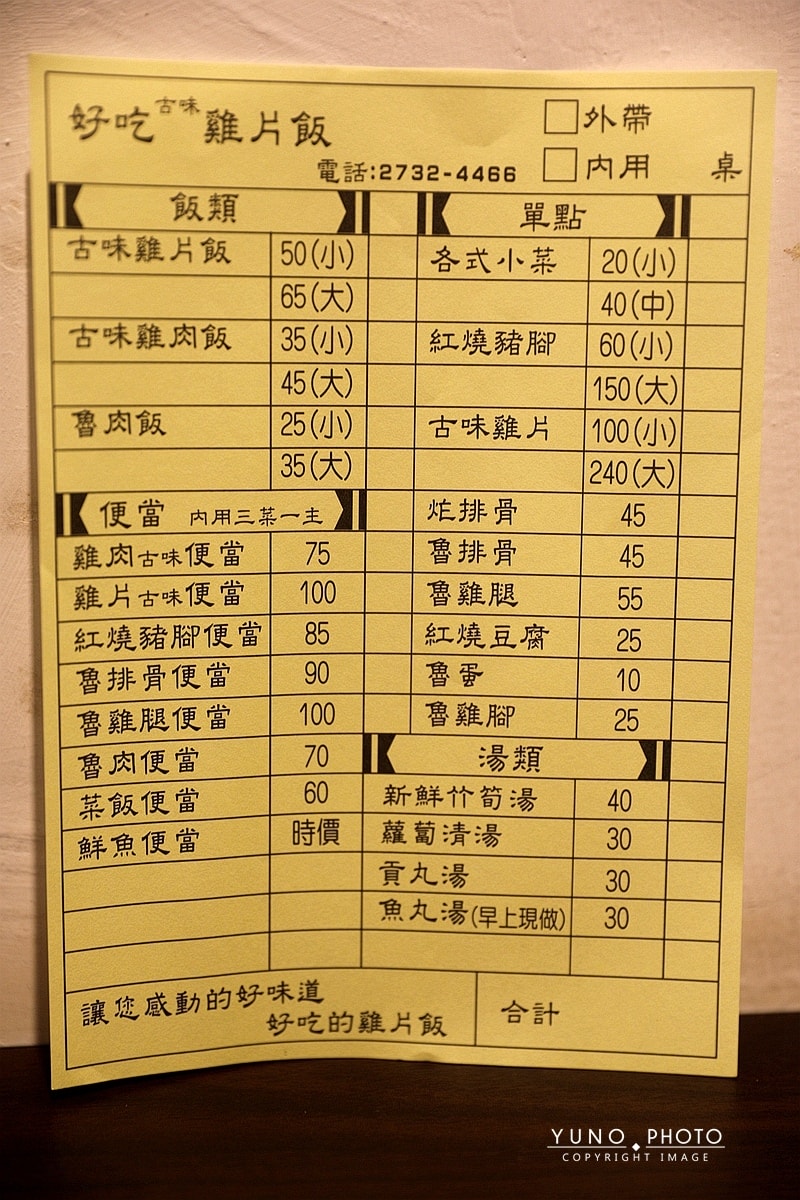 好吃古味雞片飯
□外帶
電話:2732-4466
□內用 桌
飯類
古味雞片飯 50(小)
65(大)
古味雞肉飯 35(小)
45(大)
魯肉飯 25(小)
35(大)
便當 內用三菜一主
雞肉古味便當 75
雞片古味便當 100
紅燒豬腳便當 85
魯排骨便當 90
魯雞腿便當 100
魯肉便當 70
菜飯便當 60
鮮魚便當 時價
單點
各式小菜 20(小)
40(中)
紅燒豬腳 60(小)
150(大)
古味雞片 100(小)
240(大)
炸排骨 45
魯排骨 45
魯雞腿 55
紅燒豆腐 25
魯蛋 10
魯雞腳 25
湯類
新鮮竹筍湯 40
蘿蔔清湯 30
貢丸湯 30
魚丸湯(早上現做) 30
讓您感動的好味道
好吃的雞片飯
合計
YUNO PHOTO
COPYRIGHT IMAGE